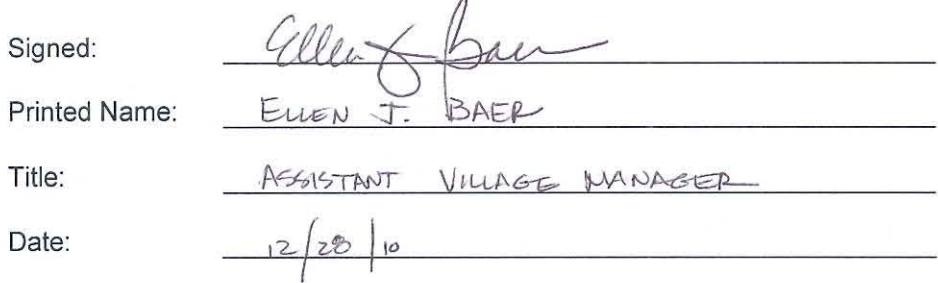 Signed: Ellen J Baer
Printed Name: ELLEN J. BAER
Title: ASSISTANT VILLAGE MANAGER
Date: 12/28/10